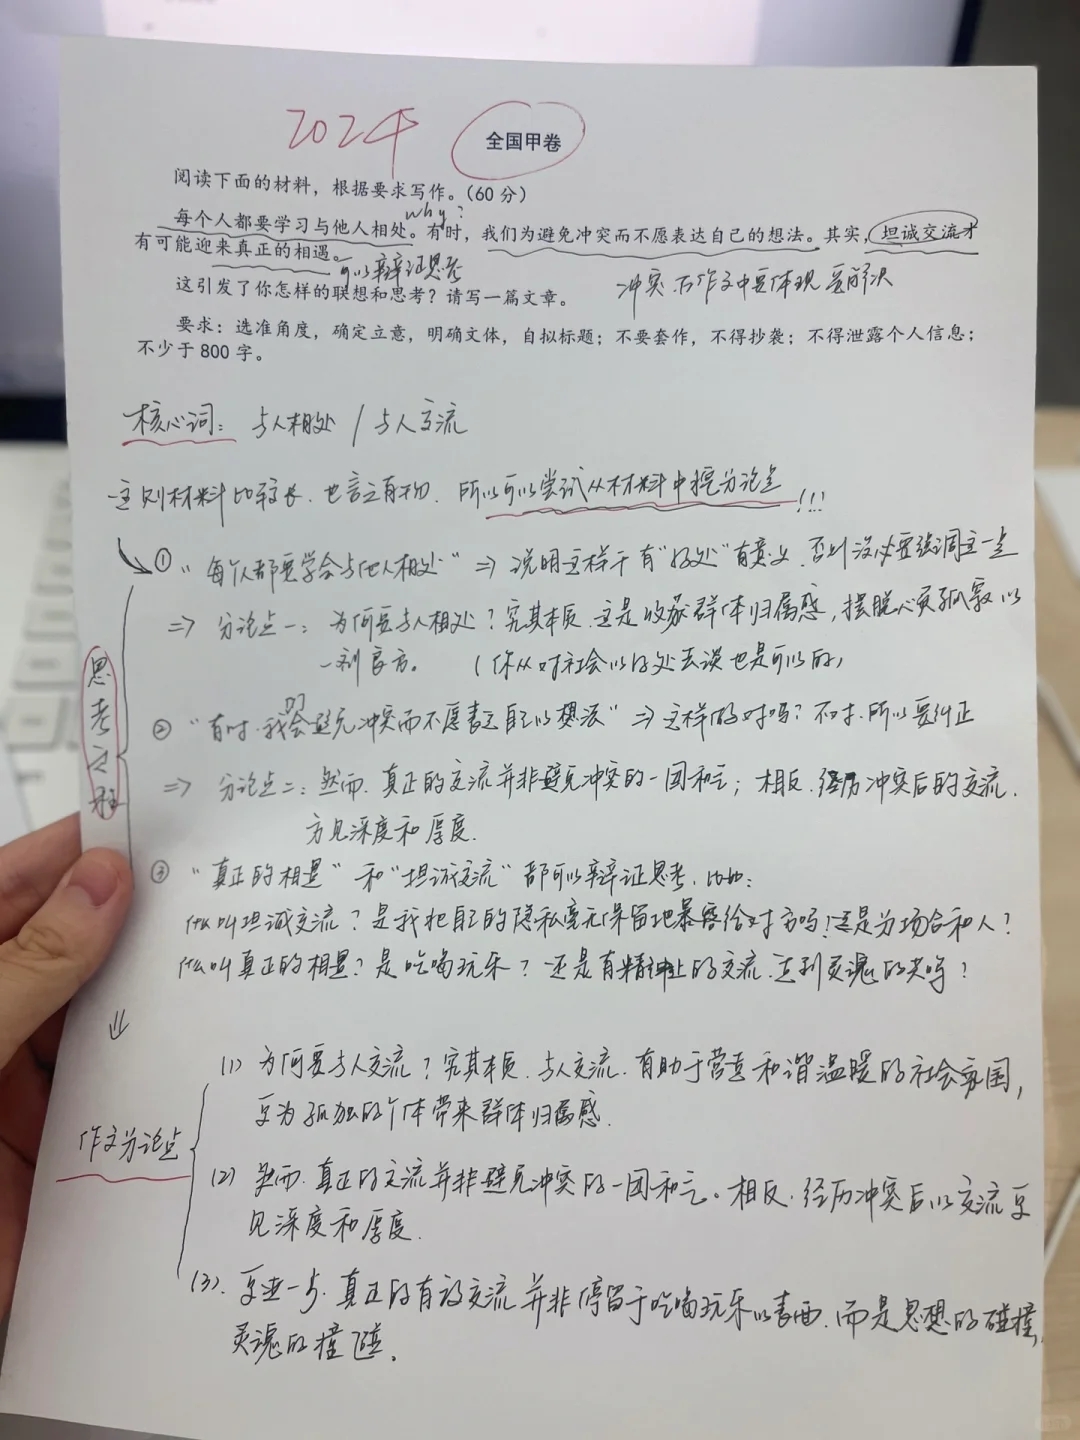 2024
全国甲卷
阅读下面的材料，根据要求写作。（60 分）
why？
每个人都要学习与他人相处。有时，我们为避免冲突而不愿表达自己的想法。其实，坦诚交流才
有可能迎来真正的相遇。
可以辩证思考
这引发了你怎样的联想和思考？请写一篇文章。
冲突 在作文中要体现 要解决
要求：选准角度，确定立意，明确文体，自拟标题；不要套作，不得抄袭；不得泄露个人信息；
不少于 800 字。
核心词： 与人相处 / 与人交流
主则材料比较长，也言之有物，所以可以尝试从材料中挖分论点!!!
思考过程
① “每个人都要学会与他人相处” => 说明这样干有“好处”有意义，否则没必要强调这一点
=> 分论点一： 为何要与人相处？究其本质，这是收获群体归属感，摆脱心灵孤寂的
一剂良方。 （你从对社会的好处去谈也是可以的）
② “有时，我们会避免冲突而不愿表达自己的想法” => 这样做对吗？不对，所以要纠正
=> 分论点二：然而，真正的交流并非避免冲突的一团和气；相反，经历冲突后的交流，
方见深度和厚度.
③ “真正的相遇” 和 “坦诚交流” 都可以辩证思考，比如：
什么叫坦诚交流？是我把自己的隐私毫无保留地暴露给对方吗！还是分场合和人？
什么叫真正的相遇？是吃喝玩乐？还是有精神上的交流，达到灵魂的共鸣？
作文分论点
(1) 为何要与人交流？究其本质，与人交流，有助于营造和谐温暖的社会氛围，
更为孤独的个体带来群体归属感.
(2) 然而，真正的交流并非避免冲突的一团和气。相反，经历冲突后的交流更
见深度和厚度.
(3). 更进一步，真正的有效交流并非停留于吃喝玩乐的表面，而是思想的碰撞，
灵魂的撞碰。